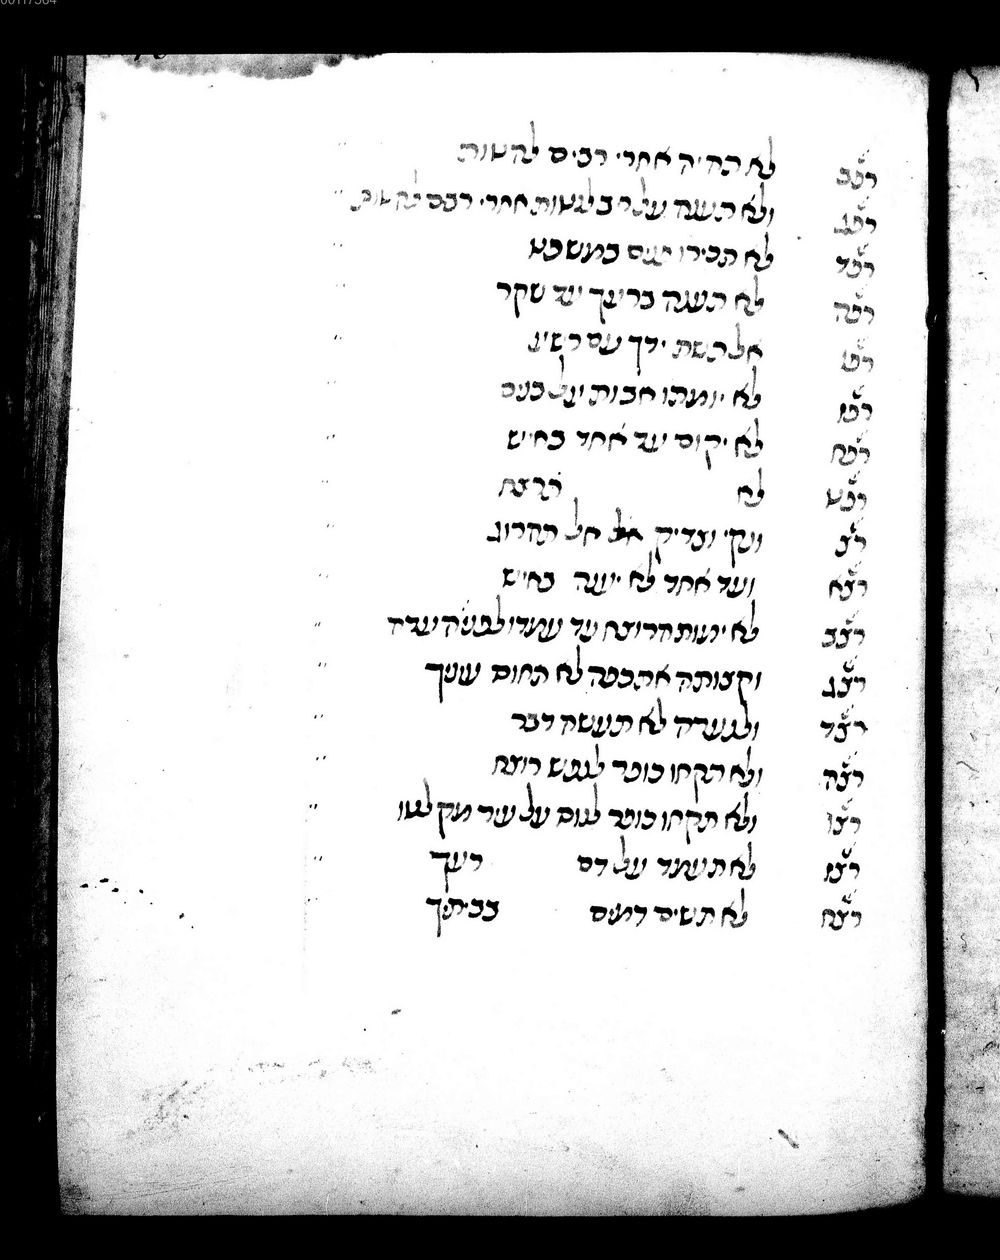 רפב לא תהיה אחרי רבים לרעות
רפג ולא תענה על ריב לנטות אחרי רבים להטות
רפד לא תכירו פנים במשפט
רפה לא תענה בריעך עד שקר
רפו אל תשת ידך עם רשע
רפז לא יומתו אבות על בנים
רפח לא יקום עד אחד באיש
רפט לא תרצח
רצ ונקי וצדיק אל תהרוג
רצא ועד אחד לא יענה באיש
רצב לא ימות הרוצח עד עמדו לפני העדה
רצג וקצותה את כפה לא תחוס עינך
רצד ולנערה לא תעשה דבר
רצה ולא תקחו כופר לנפש רוצח
רצו ולא תקחו כופר לנוס על עיר מקלטו
רצז לא תעמד על דם רעך
רצח לא תשים דמים בביתך